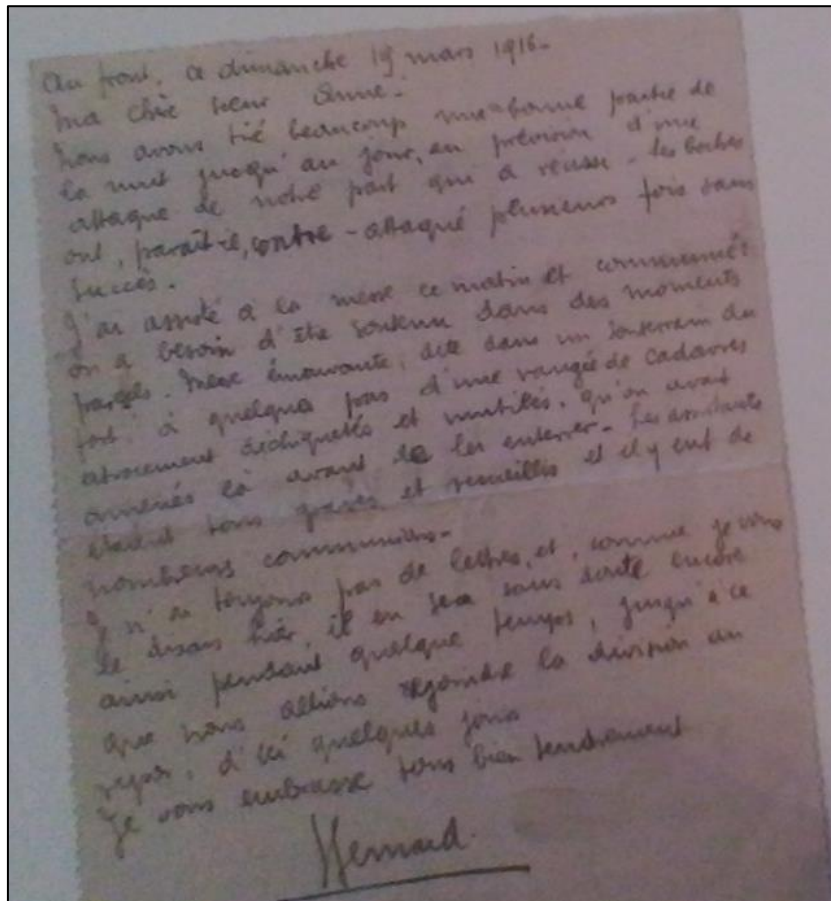 Au front, ce dimanche 19 mars 1916-
Ma chère sœur Anne-
Nous avons tiré beaucoup une bonne partie de
la nuit jusqu'au jour, en prévision d'une
attaque de notre part qui a réussi - les boches
ont, paraît-il, contre-attaqué plusieurs fois sans
succès.
J'ai assisté à la messe ce matin et communié:
on a besoin d'être soutenu dans des moments
pareils. Messe émouvante, dite dans un souterrain du
fort à quelques pas d'une rangée de cadavres
atrocement déchiquetés et mutilés, qu'on avait
amenés là avant de les enterrer- Les assistants
étaient tous graves et recueillis et il y eut de
nombreuses communions-
Je n'ai toujours pas de lettres, et, comme je vous
le disais hier, il en sera sans doute encore
ainsi pendant quelque temps, jusqu'à ce
que nous allions rejoindre la division au
repos, d'ici quelques jours
Je vous embrasse tous bien tendrement